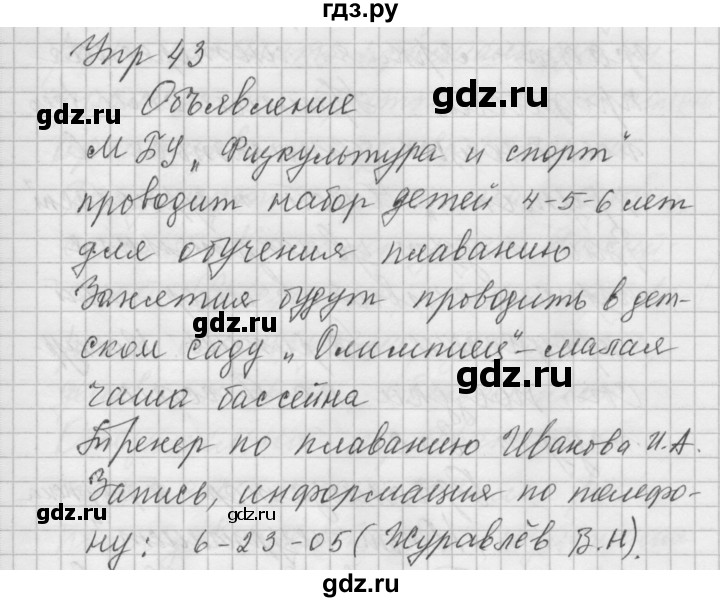 гдз.ру
Упр 43
gdz.ru
gdz.ru
Объявление
МБУ „Физкультура и спорт"
проводит набор детей 4-5-6 лет
для обучения плаванию
Занятия будут проводить в дет-
gdz.ru
ском саду „Олимпией" - малая
gdz.ru
чаша бассейна
Тренер по плаванию Иванова И.А.
Запись, информация по телефо-
gdz.ru
gdz.ru
ну: 6-23-05 (Журавлёв В.Н).
gdz.ru